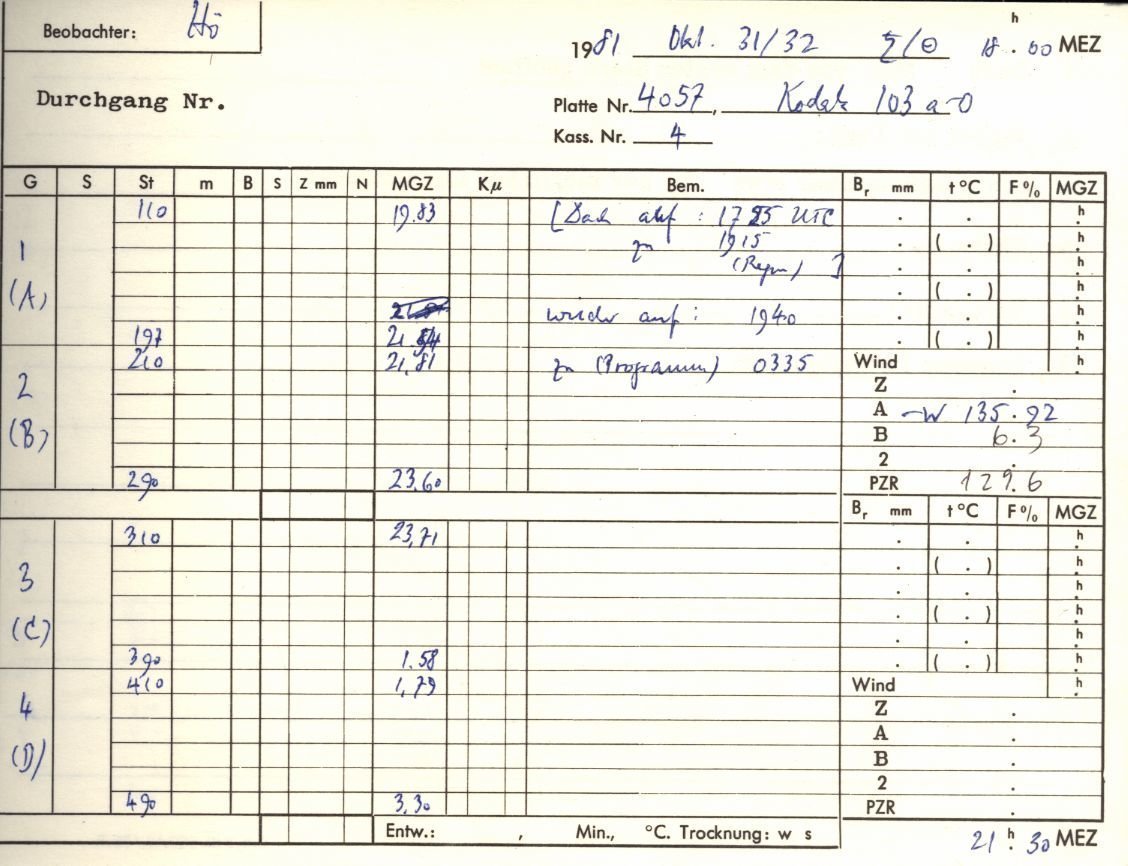 Beobachter: Hö
1981 Okt. 31/32 ♄/☉ 18 h . 00 MEZ
Durchgang Nr.
Platte Nr. 4057, Kodak 103 a-O
Kass. Nr. 4
G S St m B S Z mm N MGZ Kμ Bem. Br mm t °C F % MGZ
110 19.83 [Dach auf : 1725 UTC . . h
1 zu 1915 . ( . ) h
(A) (Regen) ] . . h
. ( . ) h
wieder auf : 1940 . . h
197 21. . ( . ) h
210 21,81 zu (Programm) 0335 Wind h
2 Z .
A -W 135.92
(B) B 6.3
2 .
290 23.60 PZR 129.6
Br mm t °C F % MGZ
310 23,71 . . h
. ( . ) h
3 . . h
. ( . ) h
(C) . . h
390 1.58 . ( . ) h
410 1,79 Wind h
4 Z .
A .
(D) B .
2 .
490 3,30 PZR .
Entw.: , Min., °C. Trocknung: w s
21 h . 30 MEZ